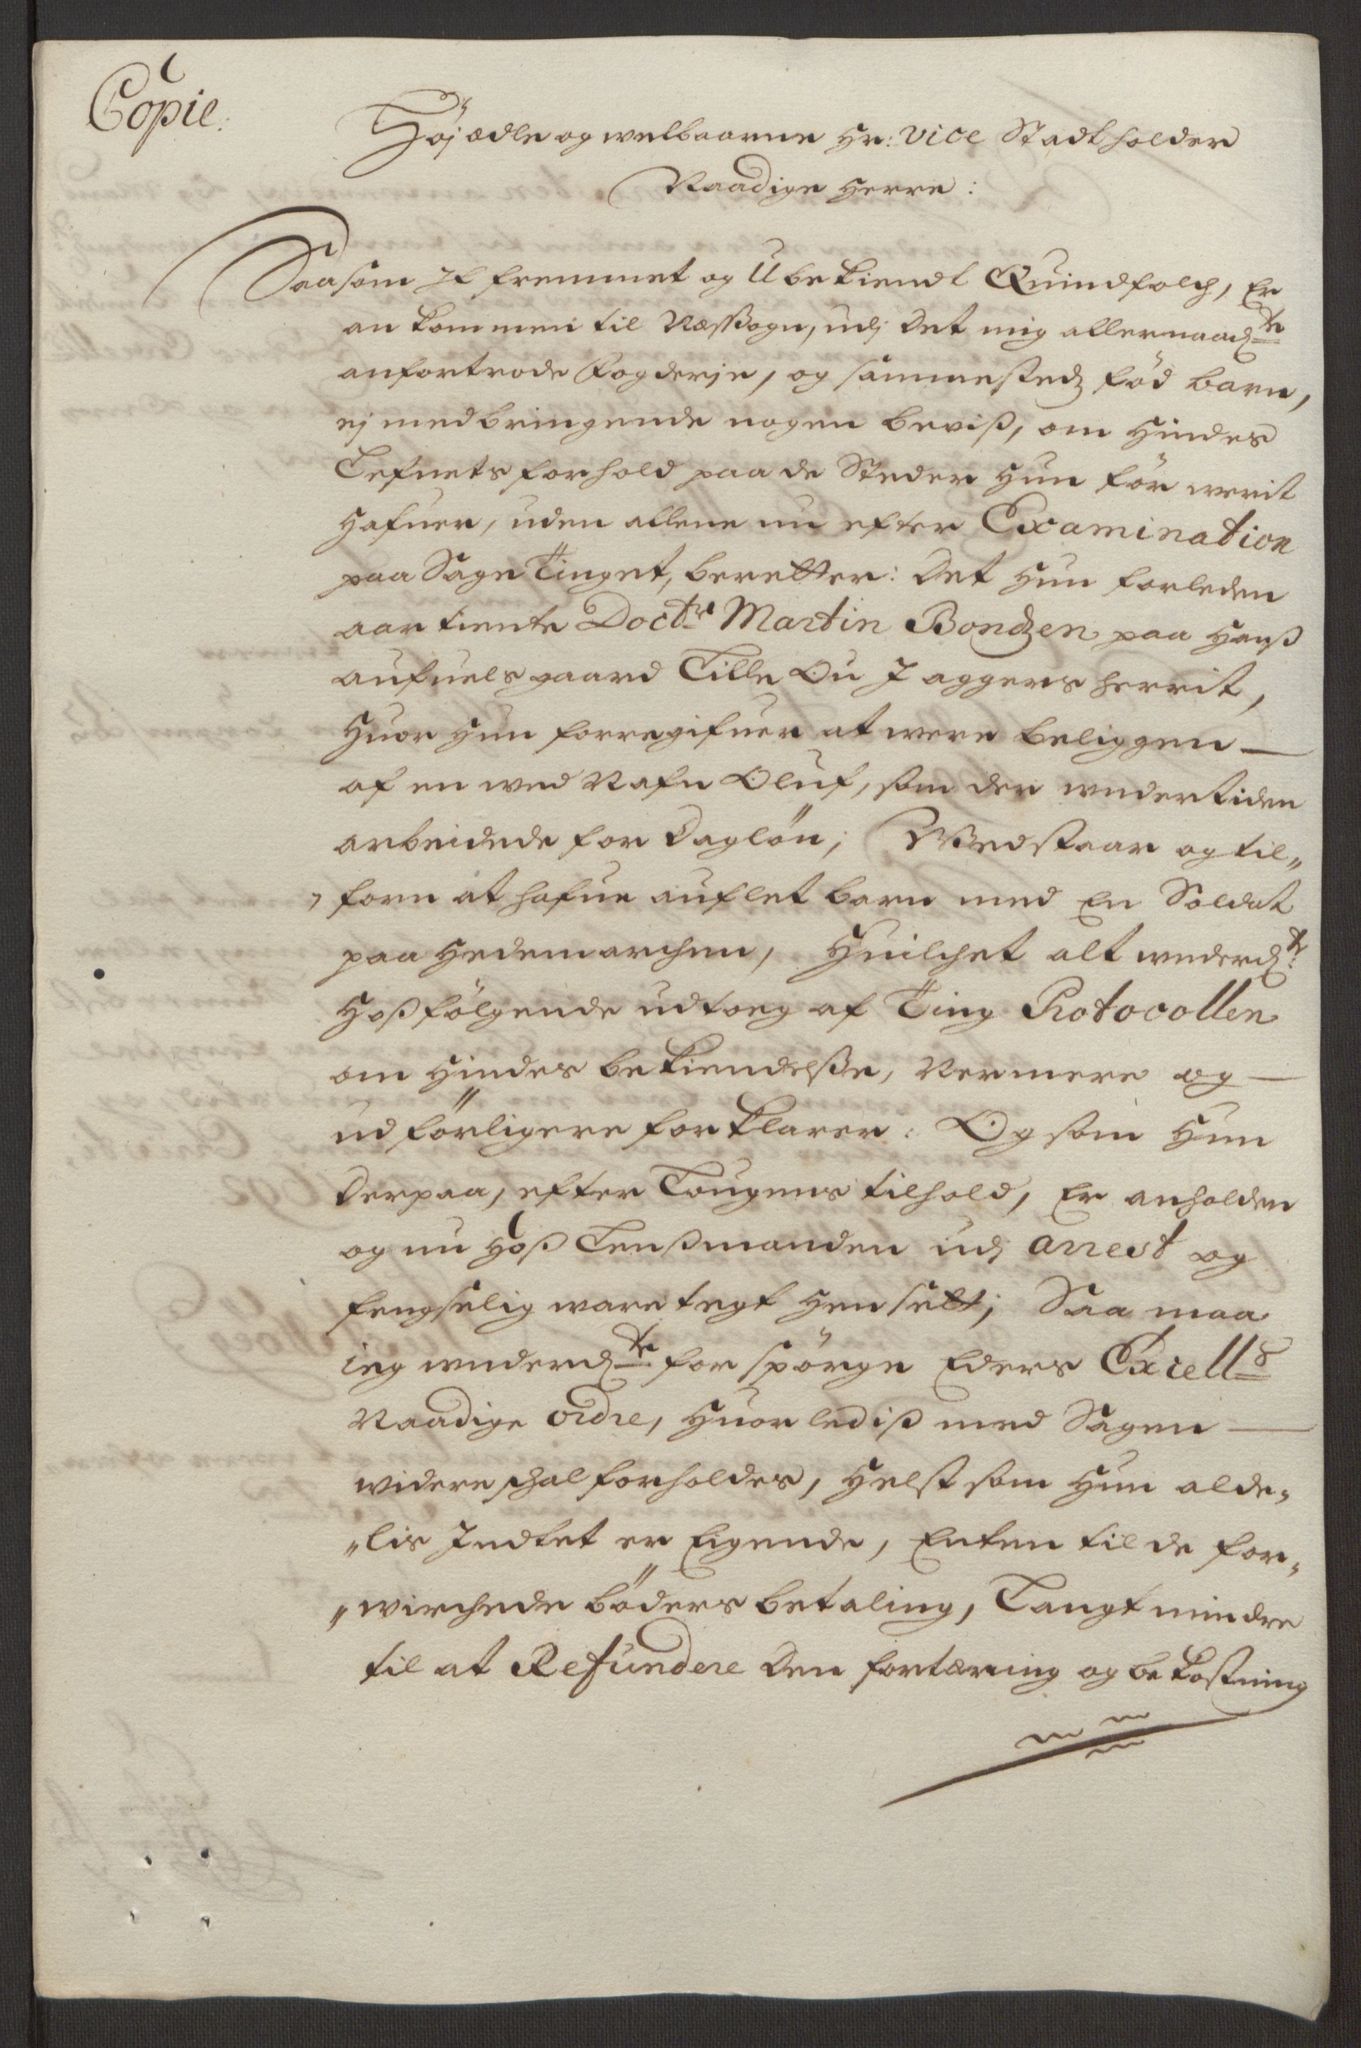 Copie:
Høj ædle og welbaarne Hr: Vice Stadtholder
Naadige Herre:
Saasom It fremmet og Ubekiendt Quindfolch, Er
ankommen til Næssogn, udj Det mig allernaadste
anfortrode Fogderje, og sammestedz Fød barn,
ej medbringende nogen beviß, om Hindes
Lefnets forhold paa de Steder Hun før werit
Hafuer, uden allene nu efter Examination
paa Sage Tinget, beretter: Det Hun forleden
aar tiente Doctr Martin Bondzen paa Hanß
aufuels gaard Lille Ou J aggers herrit,
Huor Hun forregifuer at were beliggen
af en wed Nafn Oluf, som der undertiden
arbeidede for Dagløn; Wedstaar og til„
„forn at hafue auflet barn med En Soldat
paa Hedemarchen, Huilchet alt underdte:
Hoßfølgende udtoeg af Ting Protocollen
om Hindes bekiendelße, Nermere og
udførligere forklarer: Og som Hun
Derpaa, efter Lougens tilhold, Er anholden
og nu Hoß Lenßmanden udj arrest og
fengselig waretegt Hensett; Saa maa
ieg underdte forspørge Eders Excells
Naadige ordre, Huorlediß med Sagen
widere schal forholdes, Helst som Hun alde„
„lis Indtet er Eigende, Enten til de for„
„wirchede bøders betaling, Langt mindre
til at Refundere Den fortæring og bekostning